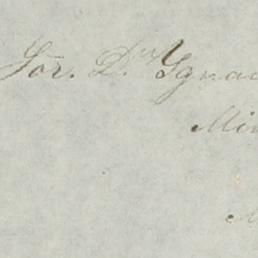 Sor. D.n Ignac
Min